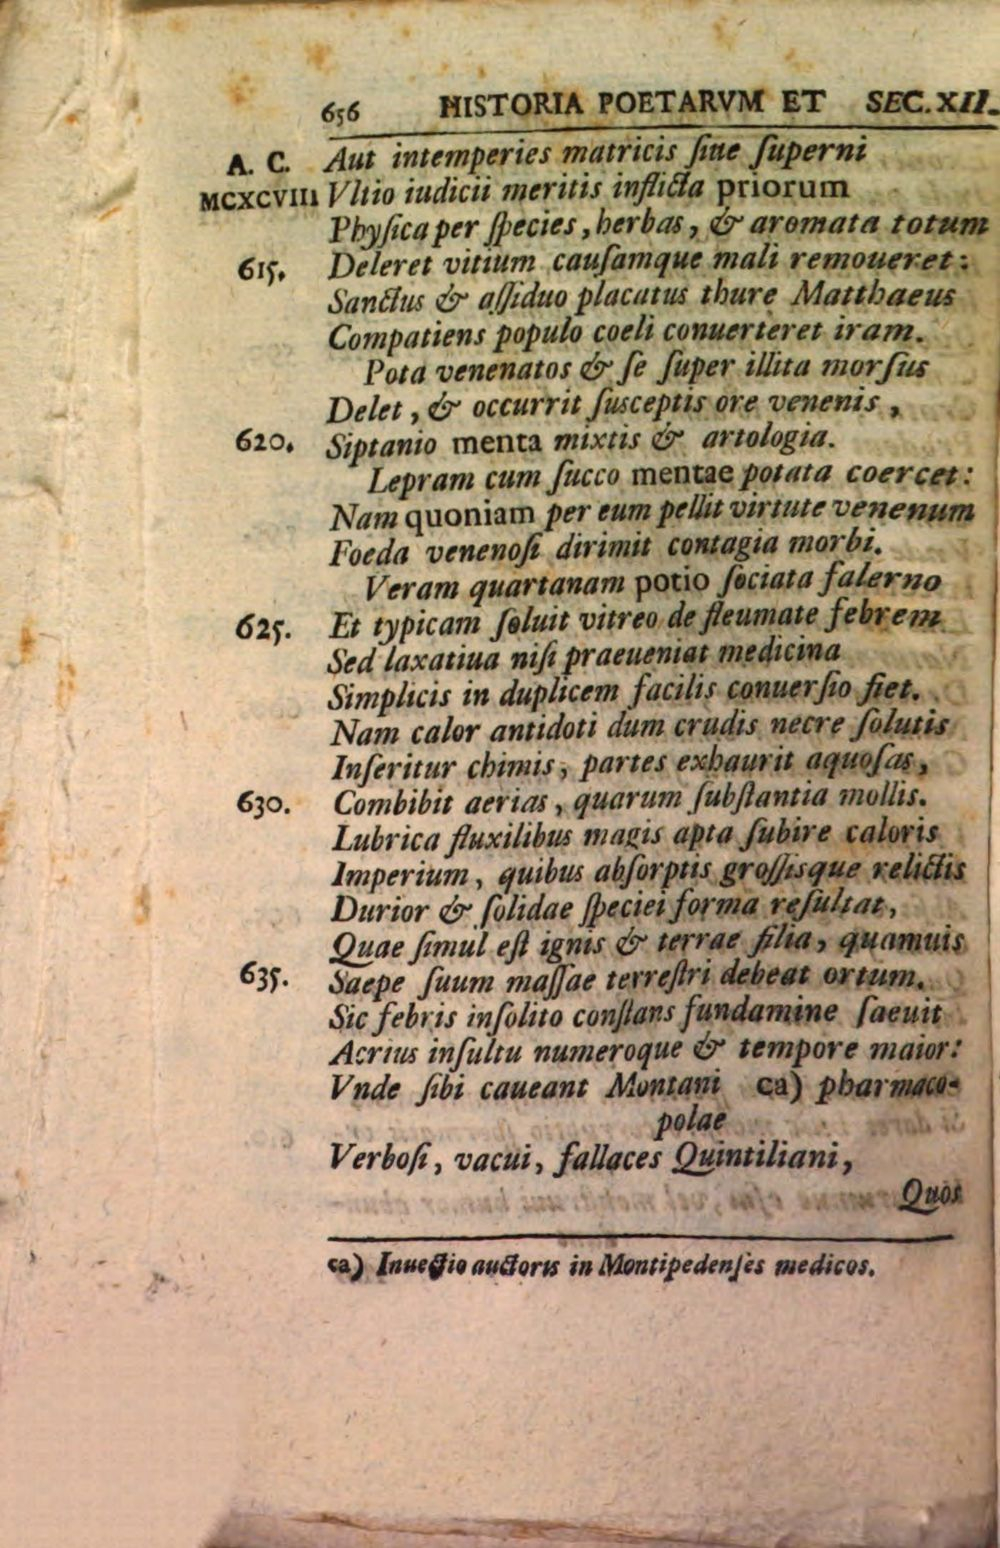 656 HISTORIA POETARVM ET SEC. XII.
A. C. Aut intemperies matricis ſiue ſuperni
MCXCVIII Vltio iudicii meritis inflicta priorum
Phyſica per ſpecies, herbas, & aromata totum
615. Deleret vitium cauſamque mali remoueret:
Sanctus & aſſiduo placatus thure Matthaeus
Compatiens populo coeli conuerteret iram.
Pota venenatos & ſe ſuper illita morſus
Delet, & occurrit ſusceptis ore venenis,
620. Siptanio menta mixtis & artologia.
Lepram cum ſucco mentae potata coercet:
Nam quoniam per eum pellit virtute venenum
Foeda venenoſi dirimit contagia morbi.
Veram quartanam potio ſociata falerno
625. Et typicam ſoluit vitreo de fleumate febrem
Sed laxatiua niſi praeueniat medicina
Simplicis in duplicem facilis conuerſio fiet.
Nam calor antidoti dum crudis necre ſolutis
Inſeritur chimis, partes exhaurit aquoſas,
630. Combibit aerias, quarum ſubſtantia mollis.
Lubrica fluxilibus magis apta ſubire caloris
Imperium, quibus abſorptis groſſisque relictis
Durior & ſolidae ſpeciei forma reſultat,
Quae ſimul eſt ignis & terrae filia, quamuis
635. Saepe ſuum maſſae terreſtri debeat ortum.
Sic febris inſolito conſtans fundamine ſaeuit
Acrius inſultu numeroque & tempore maior:
Vnde ſibi caueant Montani ca) pharmaco-
polae
Verboſi, vacui, fallaces Quintiliani,
Quos
ca) Inuectio auctoris in Montipedenſes medicos.